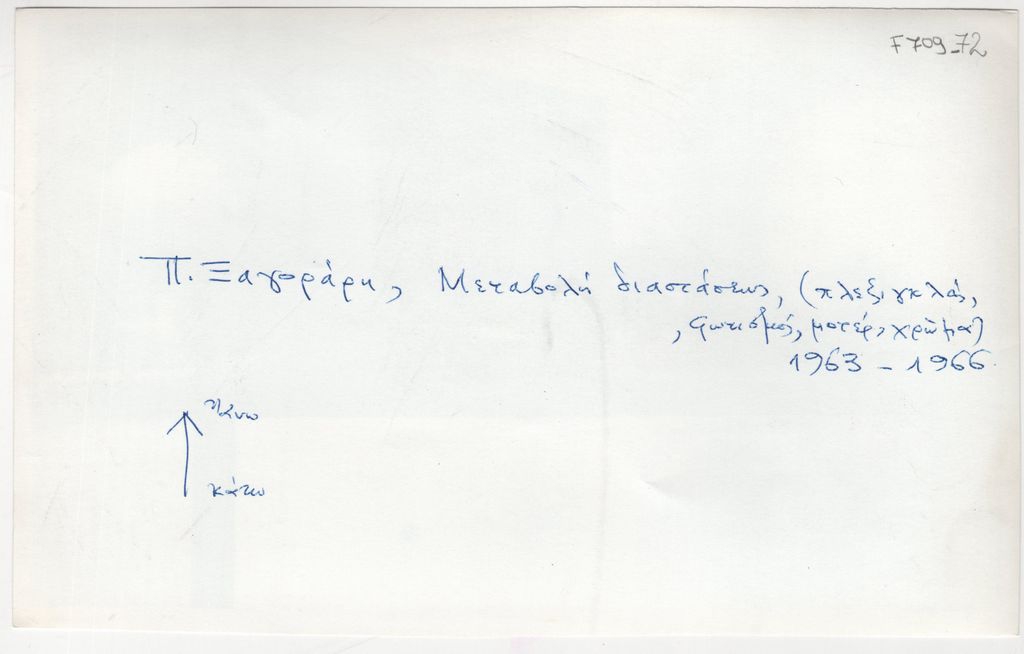 F709_72
Π. Ξαγοράρη, Μεταβολή διαστάσεως, (πλεξιγκλάς,
, φωτισμός, μοτέρ, χρώμα)
1963 - 1966
πάνω
κάτω